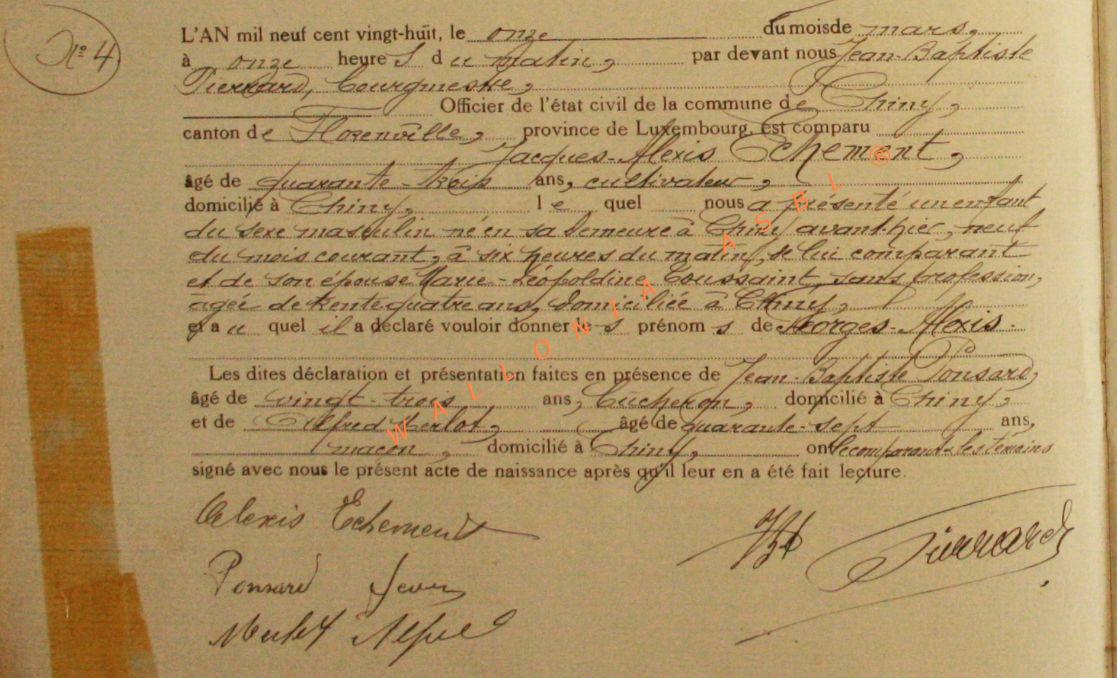 N° 4
L'AN mil neuf cent vingt-huit, le onze du mois de mars,
à onze heureS du matin, par devant nous Jean-Baptiste
Pierrard, Bourgmestre,
Officier de l'état civil de la commune de Chiny,
canton de Florenville, province de Luxembourg, est comparu
Jacques-Alexis Echement,
âgé de quarante-trois ans, cultivateur,
domicilié à Chiny, le quel nous a présenté un enfant
du sexe masculin né en sa demeure à Chiny avant-hier, neuf
du mois courant, à six heures du matin, de lui comparant
et de son épouse Marie-Léopoldine Toussaint, sans profession,
âgée de trente quatre ans, domiciliée à Chiny,
et au quel il a déclaré vouloir donner les prénoms de Georges-Alexis.
Les dites déclaration et présentation faites en présence de Jean-Baptiste Ponsard,
âgé de vingt-trois ans, bucheron, domicilié à Chiny,
et de Alfred Merlot, âgé de quarante-sept ans,
maçon, domicilié à Chiny, ont le comparant & les témoins
signé avec nous le présent acte de naissance après qu'il leur en a été fait lecture.
Alexis Echement
Pierrard
Ponsard Jean
Merlot Alfred
WALLONIA ASBL ©